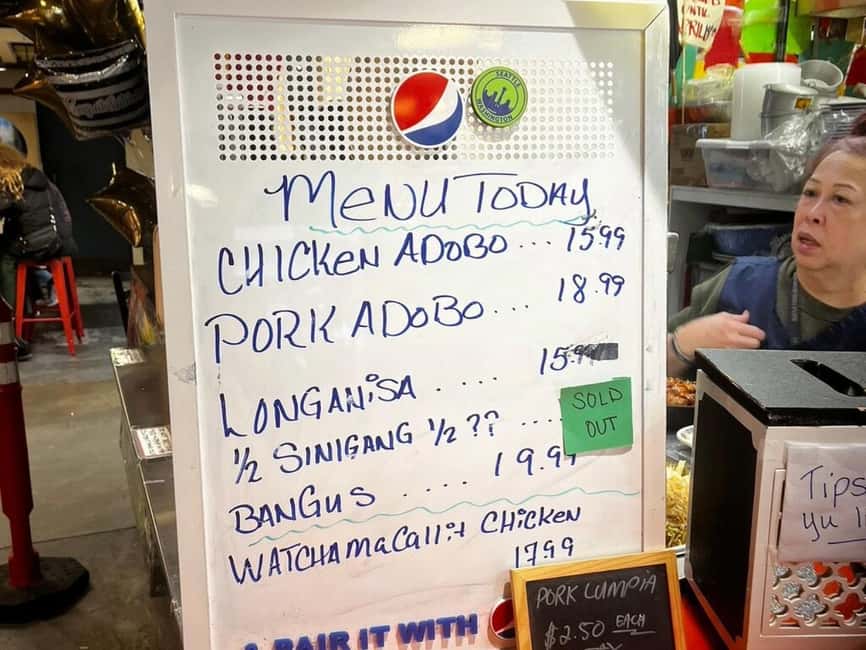 SEATTLE
WASHINGTON
MENU TODAY
CHICKEN ADOBO ... 15.99
PORK ADOBO ... 18.99
LONGANISA ....
½ SINIGANG ½ ?? ....
SOLD
OUT
BANGUS .... 19.99
WATCHAMACALLIT CHICKEN
17.99
PAIR IT WITH
PORK LUMPIA
$2.50 EACH
Tips
yu